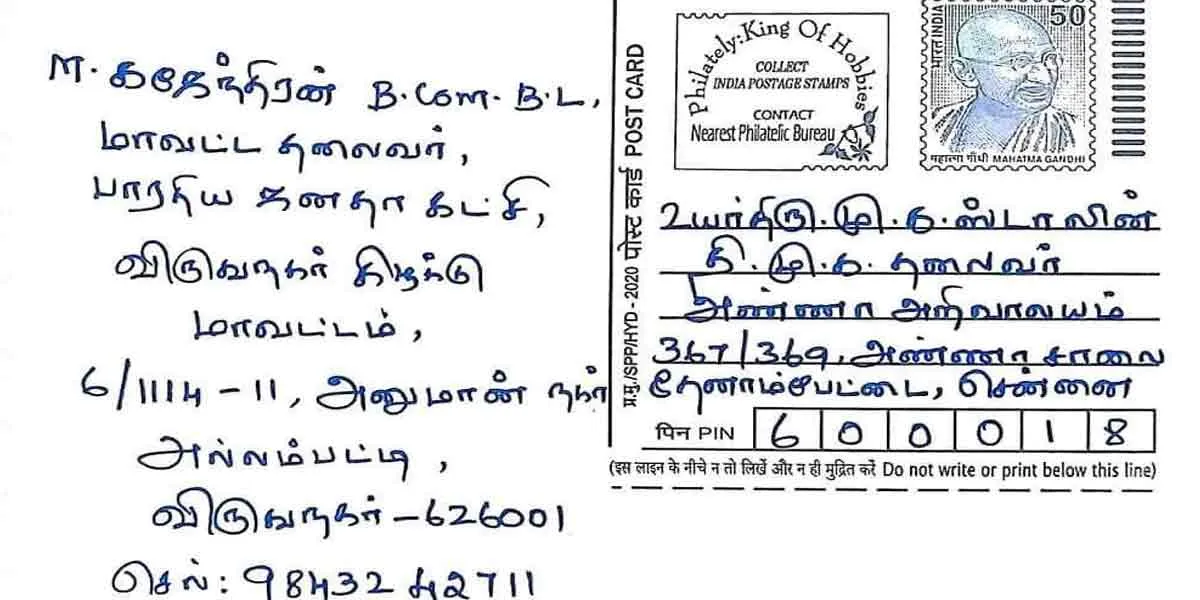 M. கஜேந்திரன் B.Com. B.L,
மாவட்ட தலைவர்,
பாரதிய ஜனதா கட்சி,
விருதுநகர் கிழக்கு
மாவட்டம்,
6/1114-11, அனுமான் நகர்
அல்லம்பட்டி,
விருதுநகர் - 626001
செல்: 98432 42711
प्र.मु./SPP/HYD - 2020 पोस्ट कार्ड POST CARD
Philately: King Of Hobbies
COLLECT
INDIA POSTAGE STAMPS
CONTACT
Nearest Philatelic Bureau
भारत INDIA
50
महात्मा गाँधी MAHATMA GANDHI
உயர்திரு. மு. க. ஸ்டாலின்
தி. மு. க. தலைவர்
அண்ணா அறிவாலயம்
367/369, அண்ணா சாலை
தேனாம்பேட்டை, சென்னை
पिन PIN 600018
(इस लाइन के नीचे न तो लिखें और न ही मुद्रित करें Do not write or print below this line)